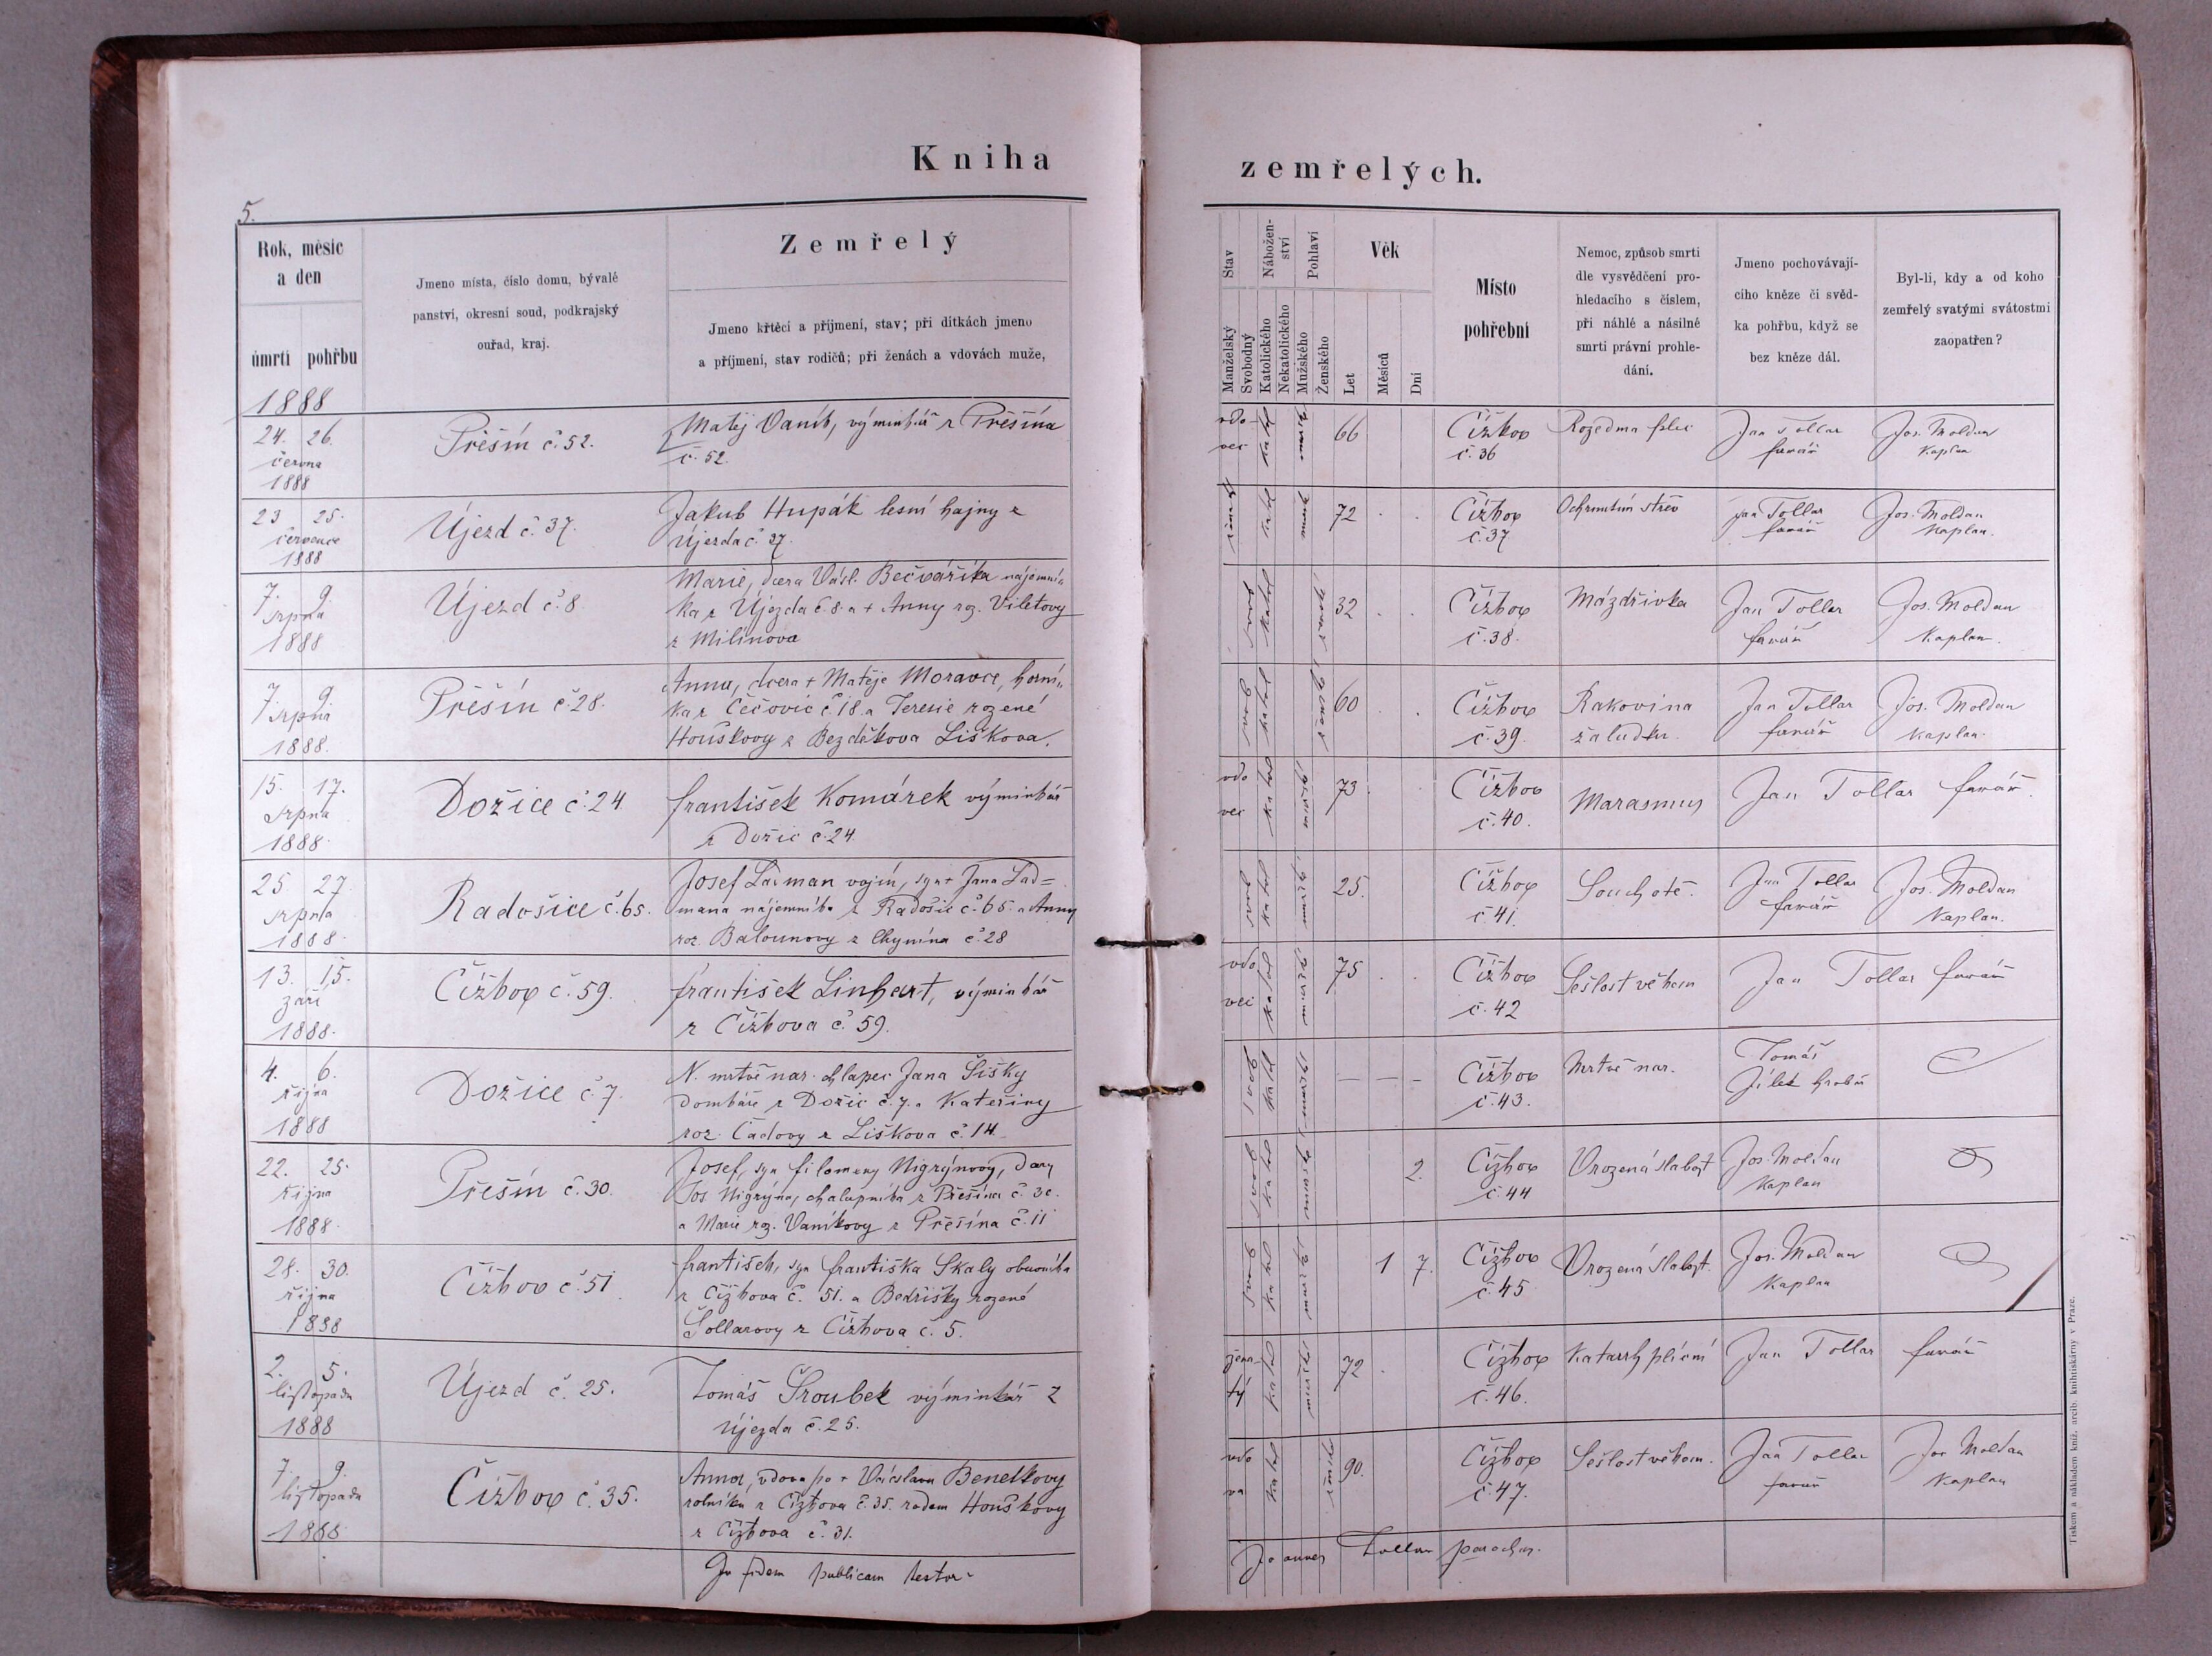 Kniha
zemřelých.
5.
Rok, měsíc
a den
úmrtí pohřbu
Jmeno místa, číslo domu, bývalé
panství, okresní soud, podkrajský
ouřad, kraj.
Zemřelý
Jmeno křtěcí a příjmení, stav; při dítkách jmeno
a příjmení, stav rodičů; při ženách a vdovách muže,
Stav
Manželský
Svobodný
Nábožen-
ství
Katolického
Nekatolického
Pohlaví
Mužského
Ženského
Věk
Let
Měsíců
Dní
Místo
pohřební
Nemoc, způsob smrti
dle vysvědčení pro-
hledacího s číslem,
při náhlé a násilné
smrti právní prohle-
dání.
Jmeno pochovávají-
cího kněze či svěd-
ka pohřbu, když se
bez kněze dál.
Byl-li, kdy a od koho
zemřelý svatými svátostmi
zaopatřen?
1888
24. 26.
června
1888
Přešín č. 52.
Matěj Vaník, výminkář z Přešína
č. 52.
vdo
vec
katol
mužsk
66
Čížkov
č. 36
Rozedma plic
Jan Tollar
farář
Jos. Moldan
Kaplan
23 25.
července
1888
Újezd č. 37.
Jakub Hupák lesní hajny z
Újezda č. 37.
katol
mužsk
72
Čížkov
č. 37
Ochrnutím střev
Jan Tollar
farář
Jos. Moldan
Kaplan.
7. 9.
srpna
1888
Újezd č. 8.
Marie, dcera Václ. Bečvaříka nájemní„
ka z Újezda č. 8. a + Anny roz. Viletovy
z Milínova
svob
katol
žensk
32
Čížkov
č. 38.
Mázdřivka
Jan Tollar
farář
Jos. Moldan
Kaplan.
7. 9.
srpna
1888.
Přešín č. 28.
Anna, dcera + Matěje Moravce, horní„
ka z Čečovic č. 18. a Terezie rozené
Houškovy z Bezděkova Liškova.
svob
katol
žensk
60
Čížkov
č. 39.
Rakovina
žaludku.
Jan Tollar
farář
Jos. Moldan
Kaplan.
15. 17.
srpna
1888.
Dožice č. 24.
František Komárek výminkář
z Dožic č. 24.
vdo
vec
katol
mužsk
73
Čížkov
č. 40.
Marasmus
Jan Tollar farář.
25 27.
srpna
1888.
Radošice č. 65.
Josef Ladman vojín, syn + Jana Lad=
mana nájemníka z Radošic č. 65. a Anny
roz. Balounovy z Chynína č. 28
svob
katol
mužsk
25.
Čížkov
č. 41.
Souchotě.
Jan Tollar
farář
Jos. Moldan
Kaplan.
13. 15.
září
1888.
Čížkov č. 59.
František Linhart, výminkář
z Čížkova č. 59.
vdo
vec
katol
mužsk
75
Čížkov
č. 42
Sešlost věkem
Jan Tollar farář
4. 6.
října
1888
Dožice č. 7.
N. mrtvě nar. chlapec Jana Šišky
domkáře z Dožic č. 7. a Kateřiny
roz. Čadovy z Liškova č. 14.
svob
katol
mužsk
— — —
Čížkov
č. 43.
Mrtvě nar.
Tomáš
Jílek hrobař
22. 25.
října
1888.
Přešín č. 30.
Josef, syn Filomeny Nigrýnovy, dcery
Jos Nigrýna, chalupníka z Přešína č. 30.
a Marie roz. Vaníkovy z Přešína č. 11
svob
katol
mužsk
2.
Čížkov
č. 44
Vrozená slabost
Jos. Moldan
Kaplan
28. 30.
října
1888
Čížkov č. 51.
František, syn Františka Skaly obuvníka
z Čížkova č. 51. a Bedřišky rozené
Tollarovy z Čížkova č. 5.
svob
katol
mužsk
1 7.
Čížkov
č. 45
Vrozená slabost.
Jos. Moldan
Kaplan
2. 5.
listopadu
1888
Újezd č. 25.
Tomáš Šroubek výminkář z
Újezda č. 25.
žena
tý
katol
mužsk
72
Čížkov
č. 46.
Katarrh plicní
Jan Tollar farář
7. 9.
listopadu
1888.
Čížkov č. 35.
Anna, vdova po + Václavu Benetkovy
rolníka z Čížkova č. 35. rodem Houškovy
z Čížkova č. 31.
vdo
va
katol
žensk
90.
Čížkov
č. 47.
Sešlost věkem.
Jan Tollar
farář
Jos Moldan
Kaplan
In fidem publicam testor
Joannes Tollar parochus.
Tiskem a nákladem kníž. arcib. knihtiskárny v Praze.